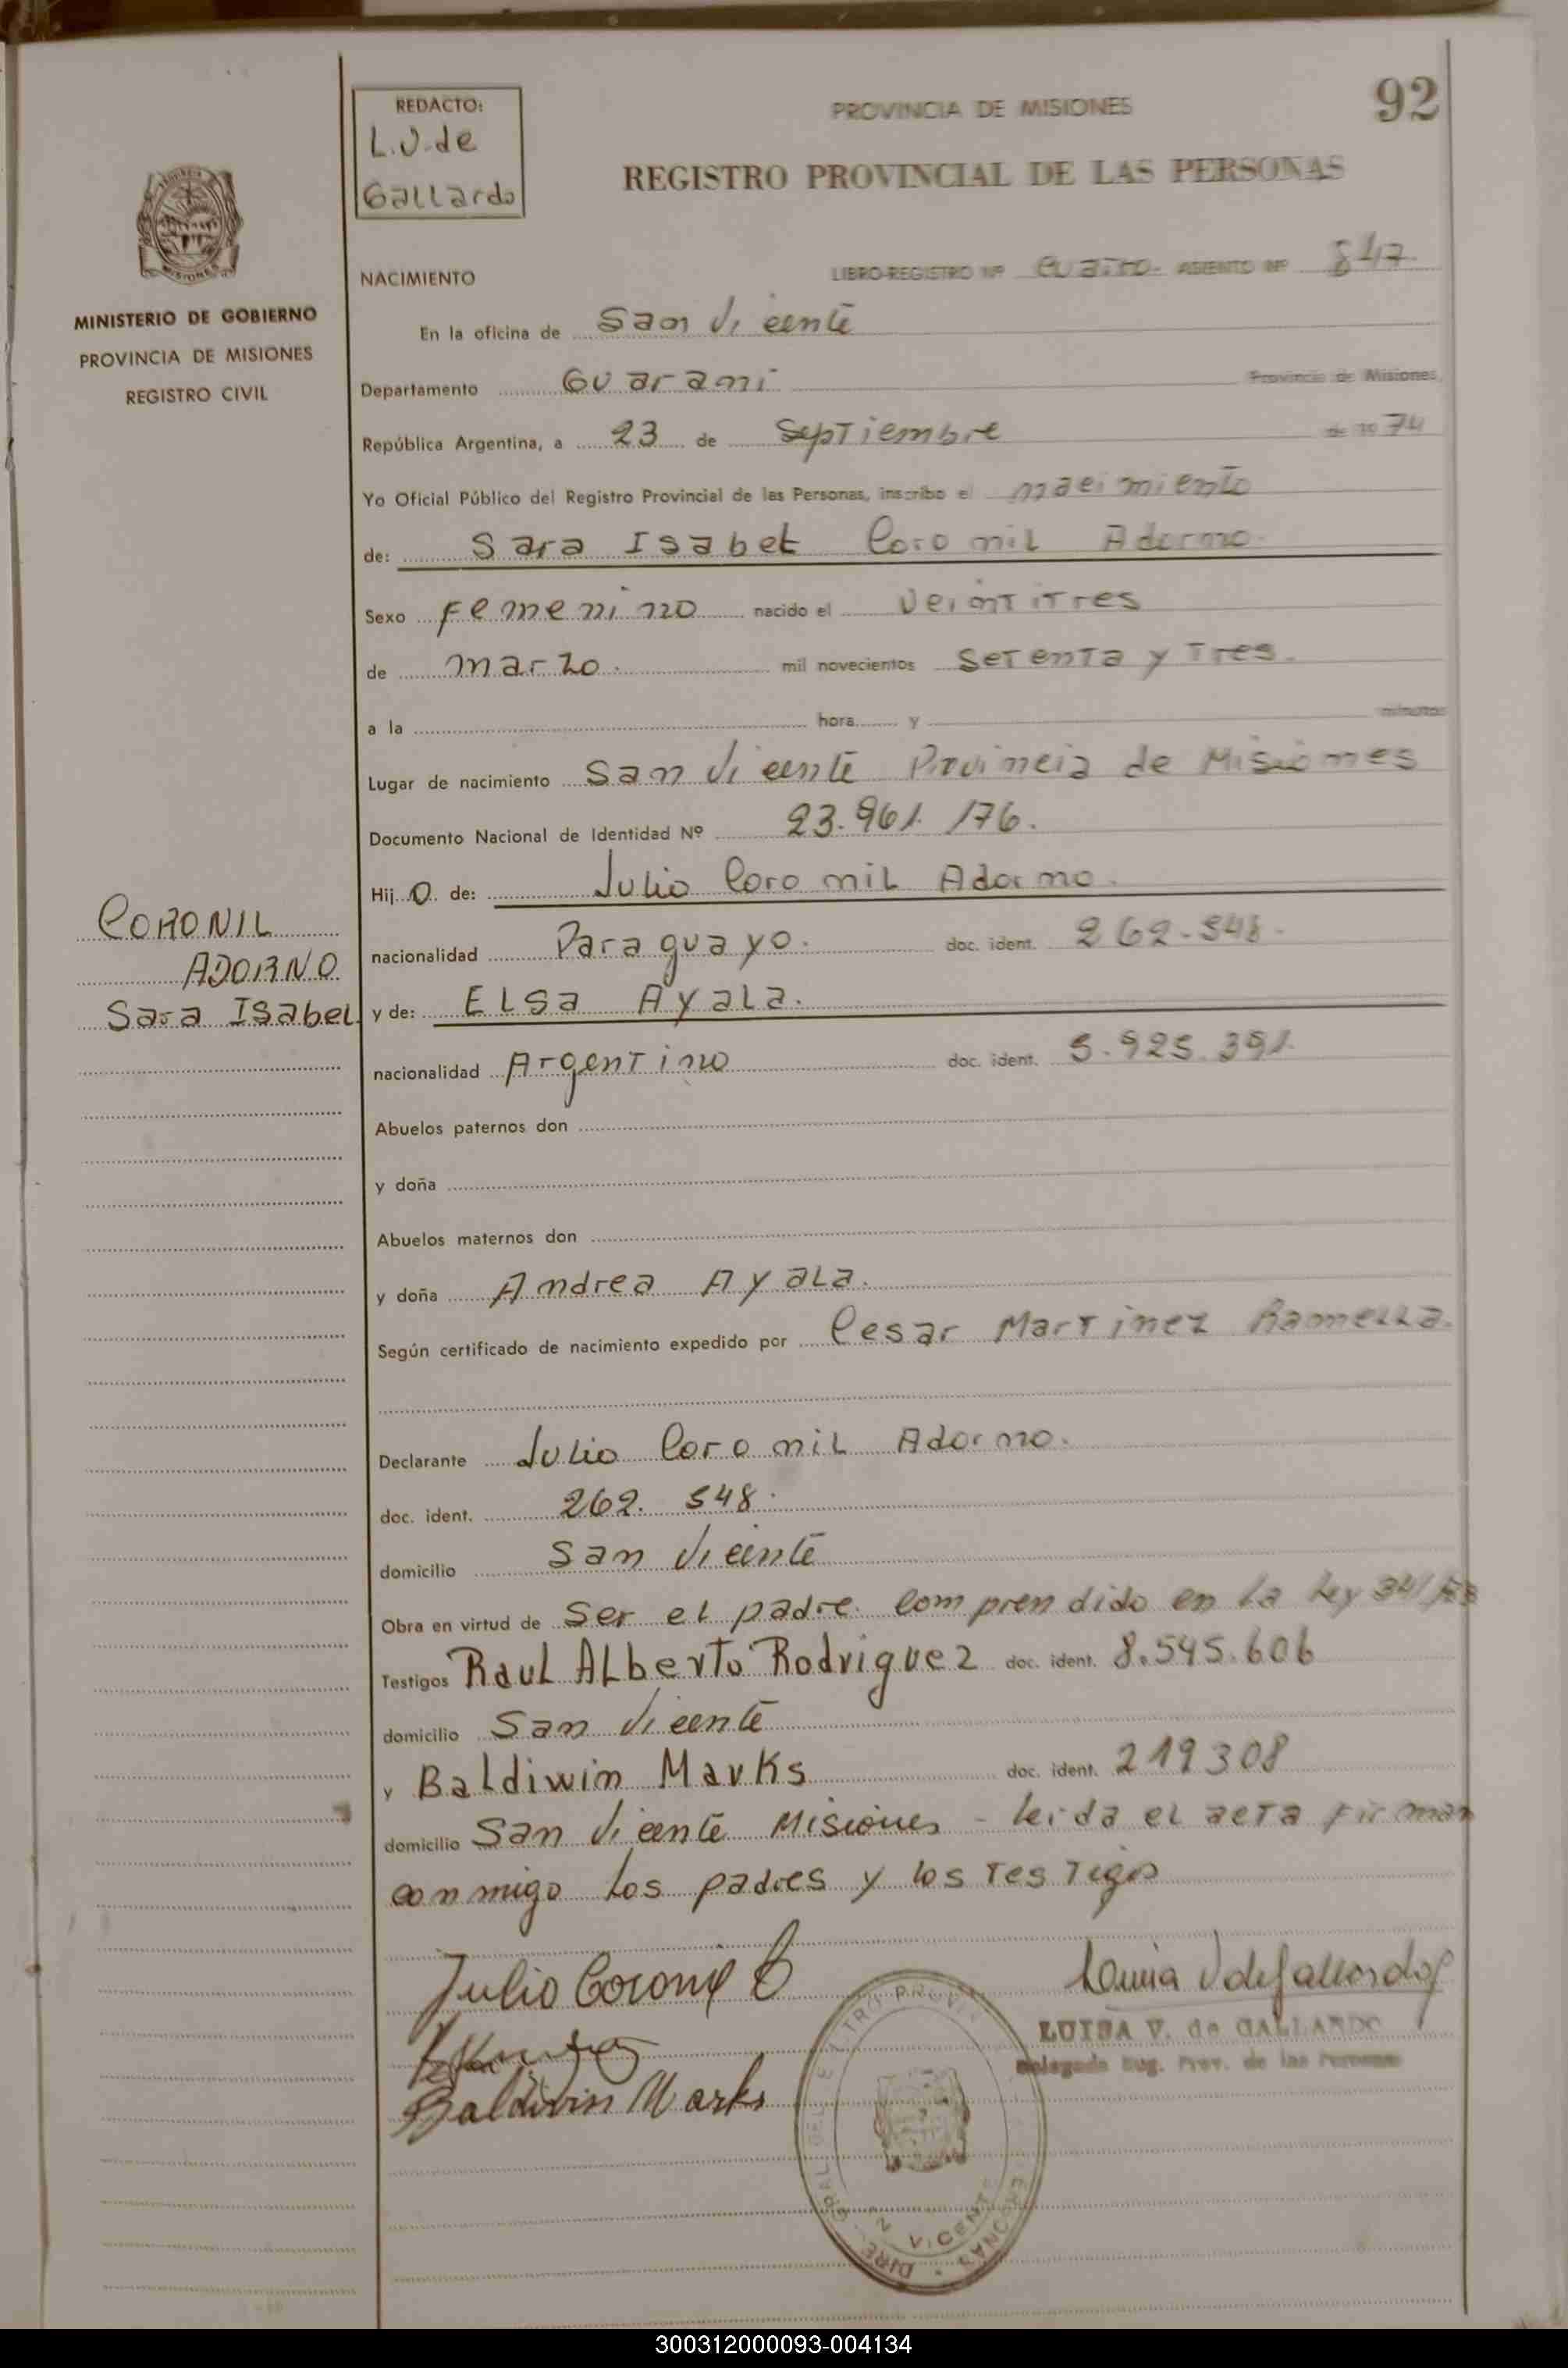 REDACTO:
L.V. de
Gallardo
PROVINCIA DE MISIONES
92
REGISTRO PROVINCIAL DE LAS PERSONAS
MISIONES
MINISTERIO DE GOBIERNO
PROVINCIA DE MISIONES
REGISTRO CIVIL
NACIMIENTO LIBRO-REGISTRO Nº cuatro. ASIENTO Nº 847.
En la oficina de San Vicente
Departamento Guarani Provincia de Misiones,
República Argentina, a 23 de Septiembre de 1974
Yo Oficial Público del Registro Provincial de las Personas, inscribo el nacimiento
de: Sara Isabel Coronil Adorno.
Sexo femenino nacido el veintitres
de marzo. mil novecientos setenta y tres.
a la hora y minutos
Lugar de nacimiento San Vicente Provincia de Misiones
Documento Nacional de Identidad Nº 23.961.176.
Hijo de: Julio Coronil Adorno.
nacionalidad Paraguayo. doc. ident. 262.548.
CORONIL
ADORNO
Sara Isabel
y de: Elsa Ayala.
nacionalidad Argentino doc. ident. 5.925.391.
Abuelos paternos don
y doña
Abuelos maternos don
y doña Andrea Ayala.
Según certificado de nacimiento expedido por Cesar Martinez Ramella.
Declarante Julio Coronil Adorno.
doc. ident. 262.548.
domicilio San Vicente
Obra en virtud de ser el padre. Comprendido en la Ley
Testigos Raul Alberto Rodriguez doc. ident. 8.545.606
domicilio San Vicente
y Baldiwin Marks doc. ident. 219308
domicilio San Vicente Misiones - leida el acta firman
conmigo los padres y los testigos
Julio Coronil
Baldivin Marks
Luisa V de Gallardo
LUISA V. de GALLARDO
Delegada Reg. Prov. de las Personas
VICENTE
300312000093-004134